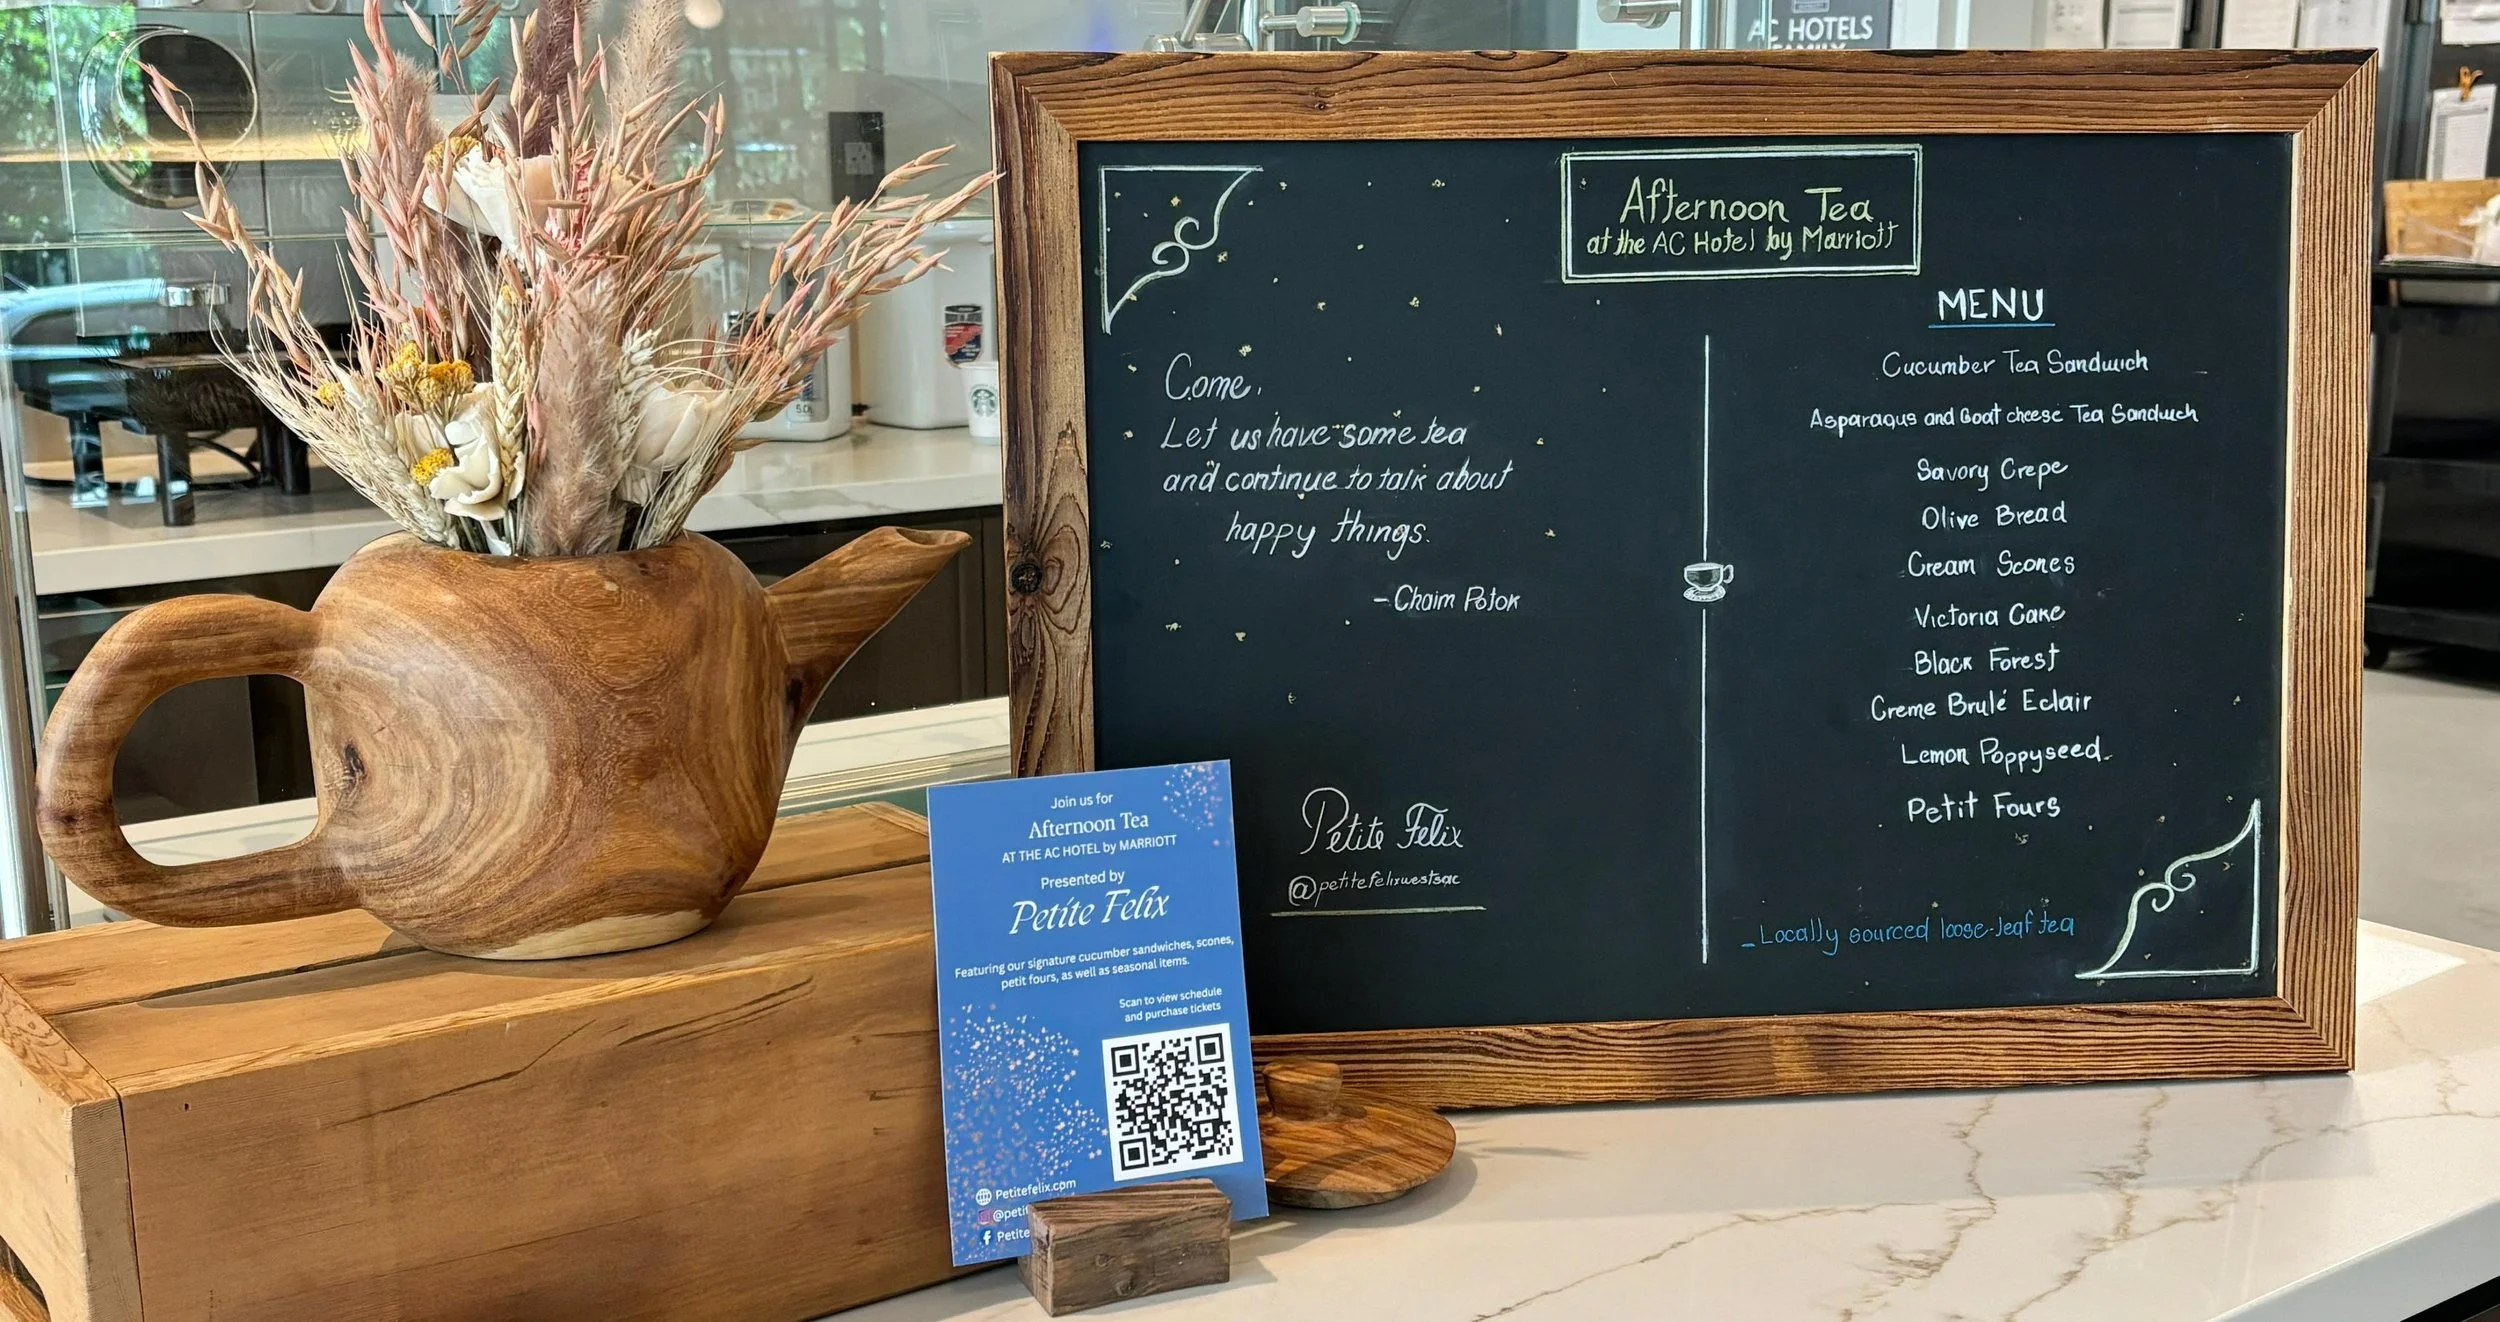 AC HOTELS
Afternoon Tea
at the AC Hotel by Marriott
Come,
Let us have some tea
and continue to talk about
happy things.
- Chaim Potok
Petite Felix
@petitefelixwestsac
MENU
Cucumber Tea Sandwich
Asparagus and Goat cheese Tea Sandwich
Savory Crepe
Olive Bread
Cream Scones
Victoria Cake
Black Forest
Creme Brulé Eclair
Lemon Poppyseed
Petit Fours
- Locally sourced loose-leaf tea
Join us for
Afternoon Tea
AT THE AC HOTEL by MARRIOTT
Presented by
Petite Felix
Featuring our signature cucumber sandwiches, scones,
petit fours, as well as seasonal items.
Scan to view schedule
and purchase tickets
Petitefelix.com
@petit
Petite